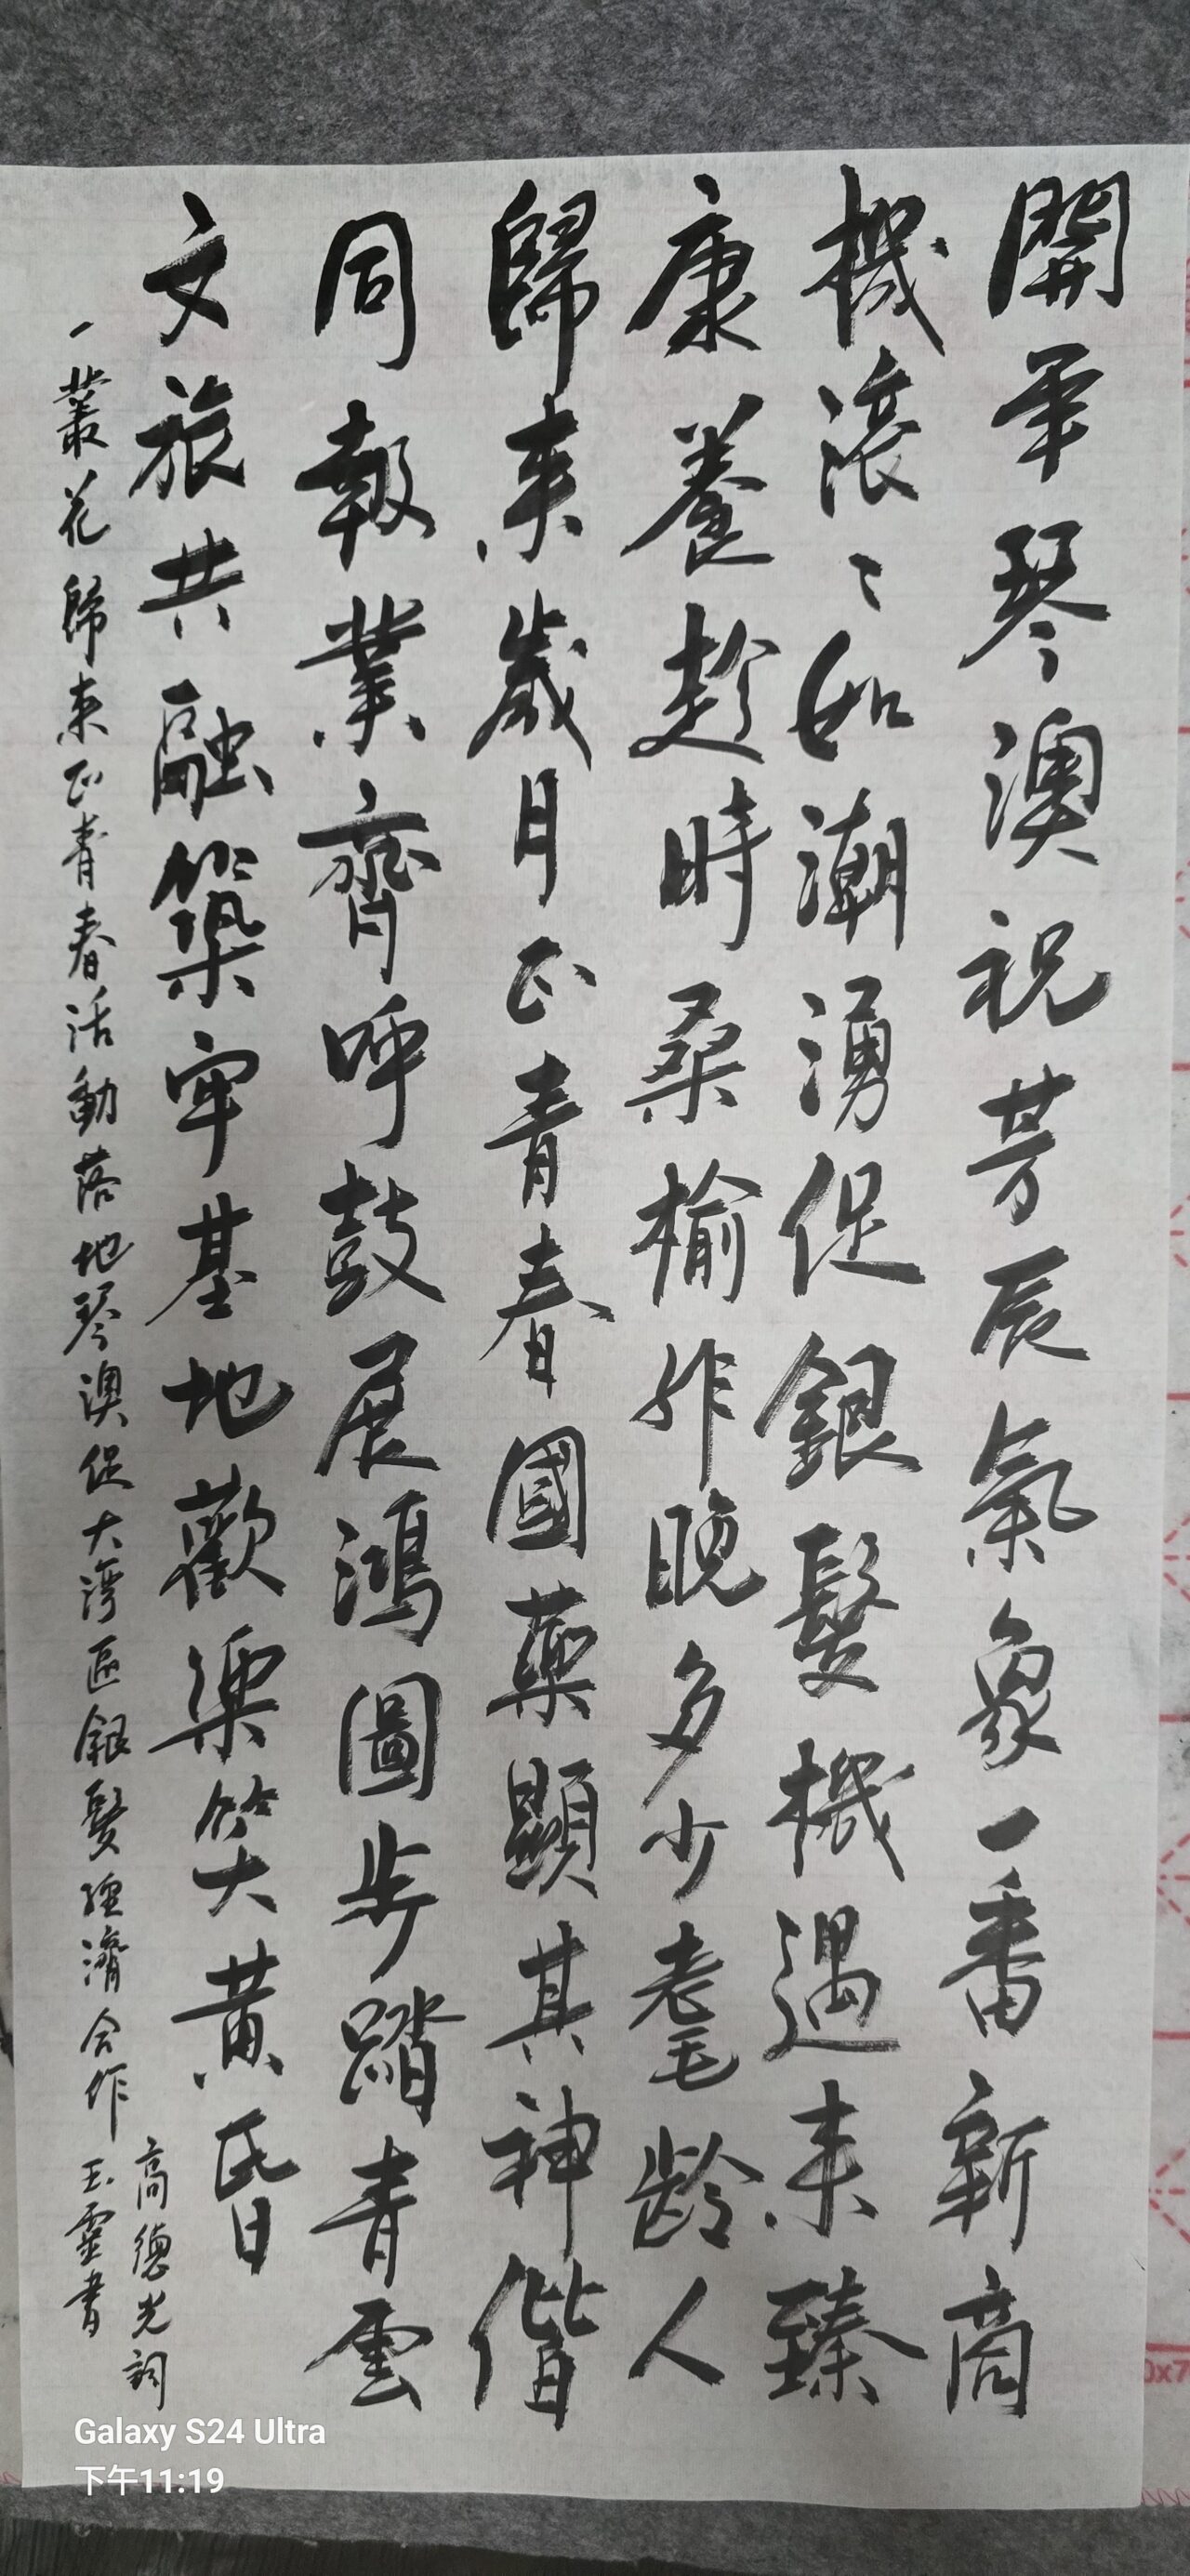 開年琴澳祝芳辰氣象一番新商
機滾〻如潮湧促銀髮機遇來臻
康養趁時桑榆非晚多少老耄齡人
歸來歲月正青春國藥顯其神偕
同報業齊呼鼓展鴻圖步踏青雲
文旅共融築牢基地歡樂笑黃昏
一叢花歸來正青春活動落地琴澳促大灣區銀髮經濟合作
高德光詞
玉靈書
Galaxy S24 Ultra
下午11:19